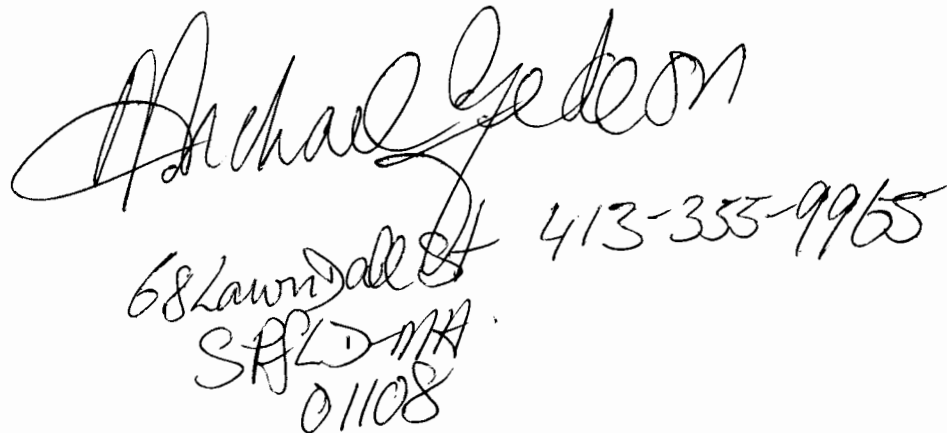 Michael Gedeon
68 LawnDale St 413-355-9965
SPFLD-MA.
01108